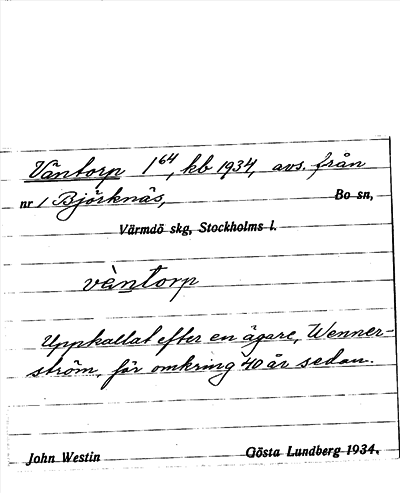 Väntorp 1⁶⁴, kb 1934, avs. från
nr 1 Björknäs, Bo sn,
Värmdö skg, Stockholms l.
vàntorp
Uppkallat efter en ägare, Wenner-
ström, för omkring 40 år sedan.
John Westin Gösta Lundberg 1934.